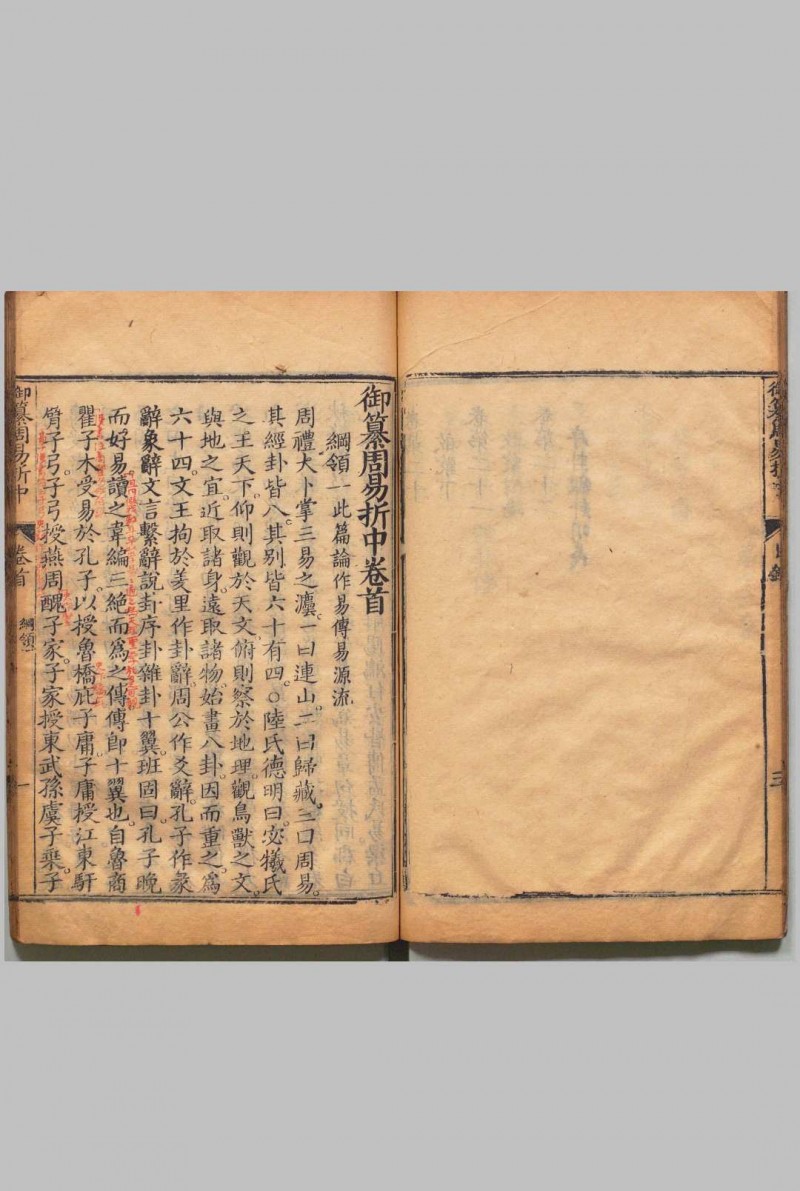 御纂周易折
目錄
三
御纂周易折中卷首
綱領一此篇論作易傳易源流
周禮大卜掌三易之灋一曰連山二曰歸藏三曰周易
其經卦皆八其别皆六十有四○陸氏德明曰宓犧氏
之王天下仰則觀於天文俯則察於地理觀鳥獸之文
與地之宜近取諸身遠取諸物始畫八卦因而重之為
六十四文王拘於羑里作卦辭周公作爻辭孔子作彖
辭象辭文言繫辭說卦序卦雜卦十翼班固曰孔子晚
而好易讀之韋編三絶而為之傳傳卽十翼也自魯商
瞿子木受易於孔子以授魯橋庇子庸子庸授江東馯
臂子弓子弓授燕周醜子家子家授東武孫虞子乗子
御纂周易折中
卷首
綱領一
一